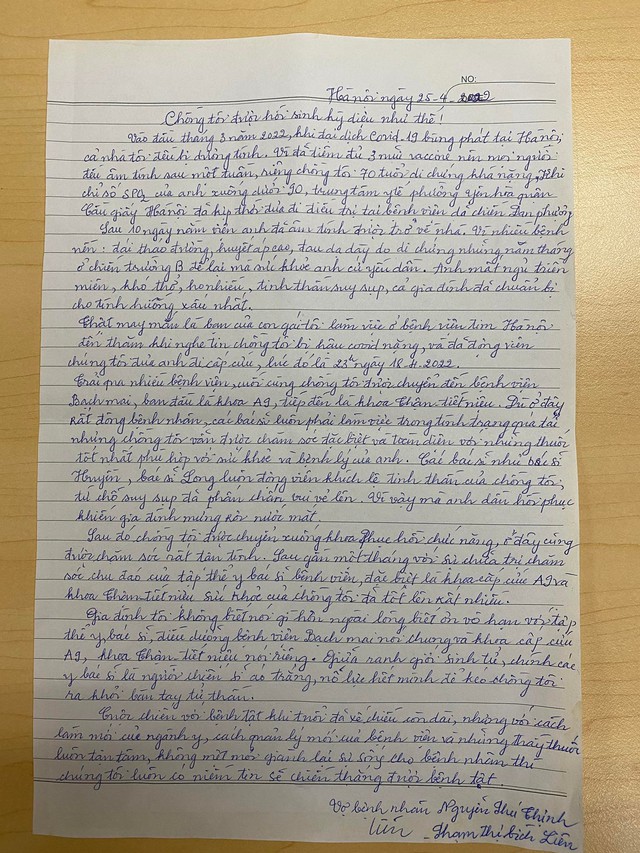 NO:
Hà nội ngày 25-4-2022
Chồng tôi được hồi sinh kỳ diệu như thế!
Vào đầu tháng 3 năm 2022, khi đại dịch Covid.19 bùng phát tại Hà nội,
cả nhà tôi đều bị dương tính. Vì đã tiêm đủ 3 mũi vaccine nên mọi người
đều âm tính sau một tuần, riêng chồng tôi 70 tuổi di chứng khá nặng. Khi
chỉ số SPO2 của anh xuống dưới 90, trung tâm y tế phường yên hòa quận
Cầu giấy Hà nội đã kịp thời đưa đi điều trị tại bệnh viện dã chiến Đan phượng
Sau 10 ngày nằm viện anh đã âm tính được trở về nhà. Vì nhiều bệnh
nền: đái tháo đường, huyết áp cao, đau dạ dày do di chứng những năm tháng
ở chiến trường B để lại mà sức khỏe anh cứ yếu dần. Anh mất ngủ triền
miên, khó thở, ho nhiều, tinh thần suy sụp, cả gia đình đã chuẩn bị
cho tình huống xấu nhất.
Thật may mắn là bạn của con gái tôi làm việc ở bệnh viện tim Hà nội
đến thăm khi nghe tin chồng tôi bị hậu covid nặng, và đã động viên
chúng tôi đưa anh đi cấp cứu, lúc đó là 23h ngày 18.4.2022.
Trải qua nhiều bệnh viện, cuối cùng chồng tôi được chuyển đến bệnh viện
Bạch mai, ban đầu là khoa A9, tiếp đến là khoa Thận tiết niệu. Dù ở đây
rất đông bệnh nhân, các bác sĩ luôn phải làm việc trong tình trạng quá tải
nhưng chồng tôi vẫn được chăm sóc đặc biệt và toàn diện với những thuốc
tốt nhất phù hợp với sức khỏe và bệnh lý của anh. Các bác sĩ như bác sĩ
Huyền, bác sĩ Long luôn động viên khích lệ tinh thần của chồng tôi,
từ chỗ suy sụp đã phấn chấn vui vẻ lên. Vì vậy mà anh dần hồi phục
khiến gia đình mừng rơi nước mắt.
Sau đó chồng tôi được chuyển xuống khoa Phục hồi chức năng, ở đây cũng
được chăm sóc rất tận tình. Sau gần một tháng với sự chữa trị chăm
sóc chu đáo của tập thể y bác sĩ bệnh viện, đặc biệt là khoa cấp cứu A9 và
khoa Thận tiết niệu sức khỏe của chồng tôi đã tốt lên rất nhiều.
Gia đình tôi không biết nói gì hơn ngoài lòng biết ơn vô hạn với tập
thể y, bác sĩ, điều dưỡng bệnh viện Bạch mai nói chung và khoa cấp cứu
A9, khoa Thận tiết niệu nói riêng. Giữa ranh giới sinh tử, chính các
y bác sĩ là người chiến sĩ áo trắng, nỗ lực hết mình để kéo chồng tôi
ra khỏi bàn tay tử thần.
Cuộc chiến với bệnh tật khi tuổi đã xế chiều còn dài, nhưng với cách
làm mới của ngành y, cách quản lý mới của bệnh viện và những thầy thuốc
luôn tận tâm, không mệt mỏi giành lại sự sống cho bệnh nhân thì
chúng tôi luôn có niềm tin sẽ chiến thắng được bệnh tật.
Vợ bệnh nhân Nguyễn Phú Thịnh
Liên
Phạm Thị Bích Liên